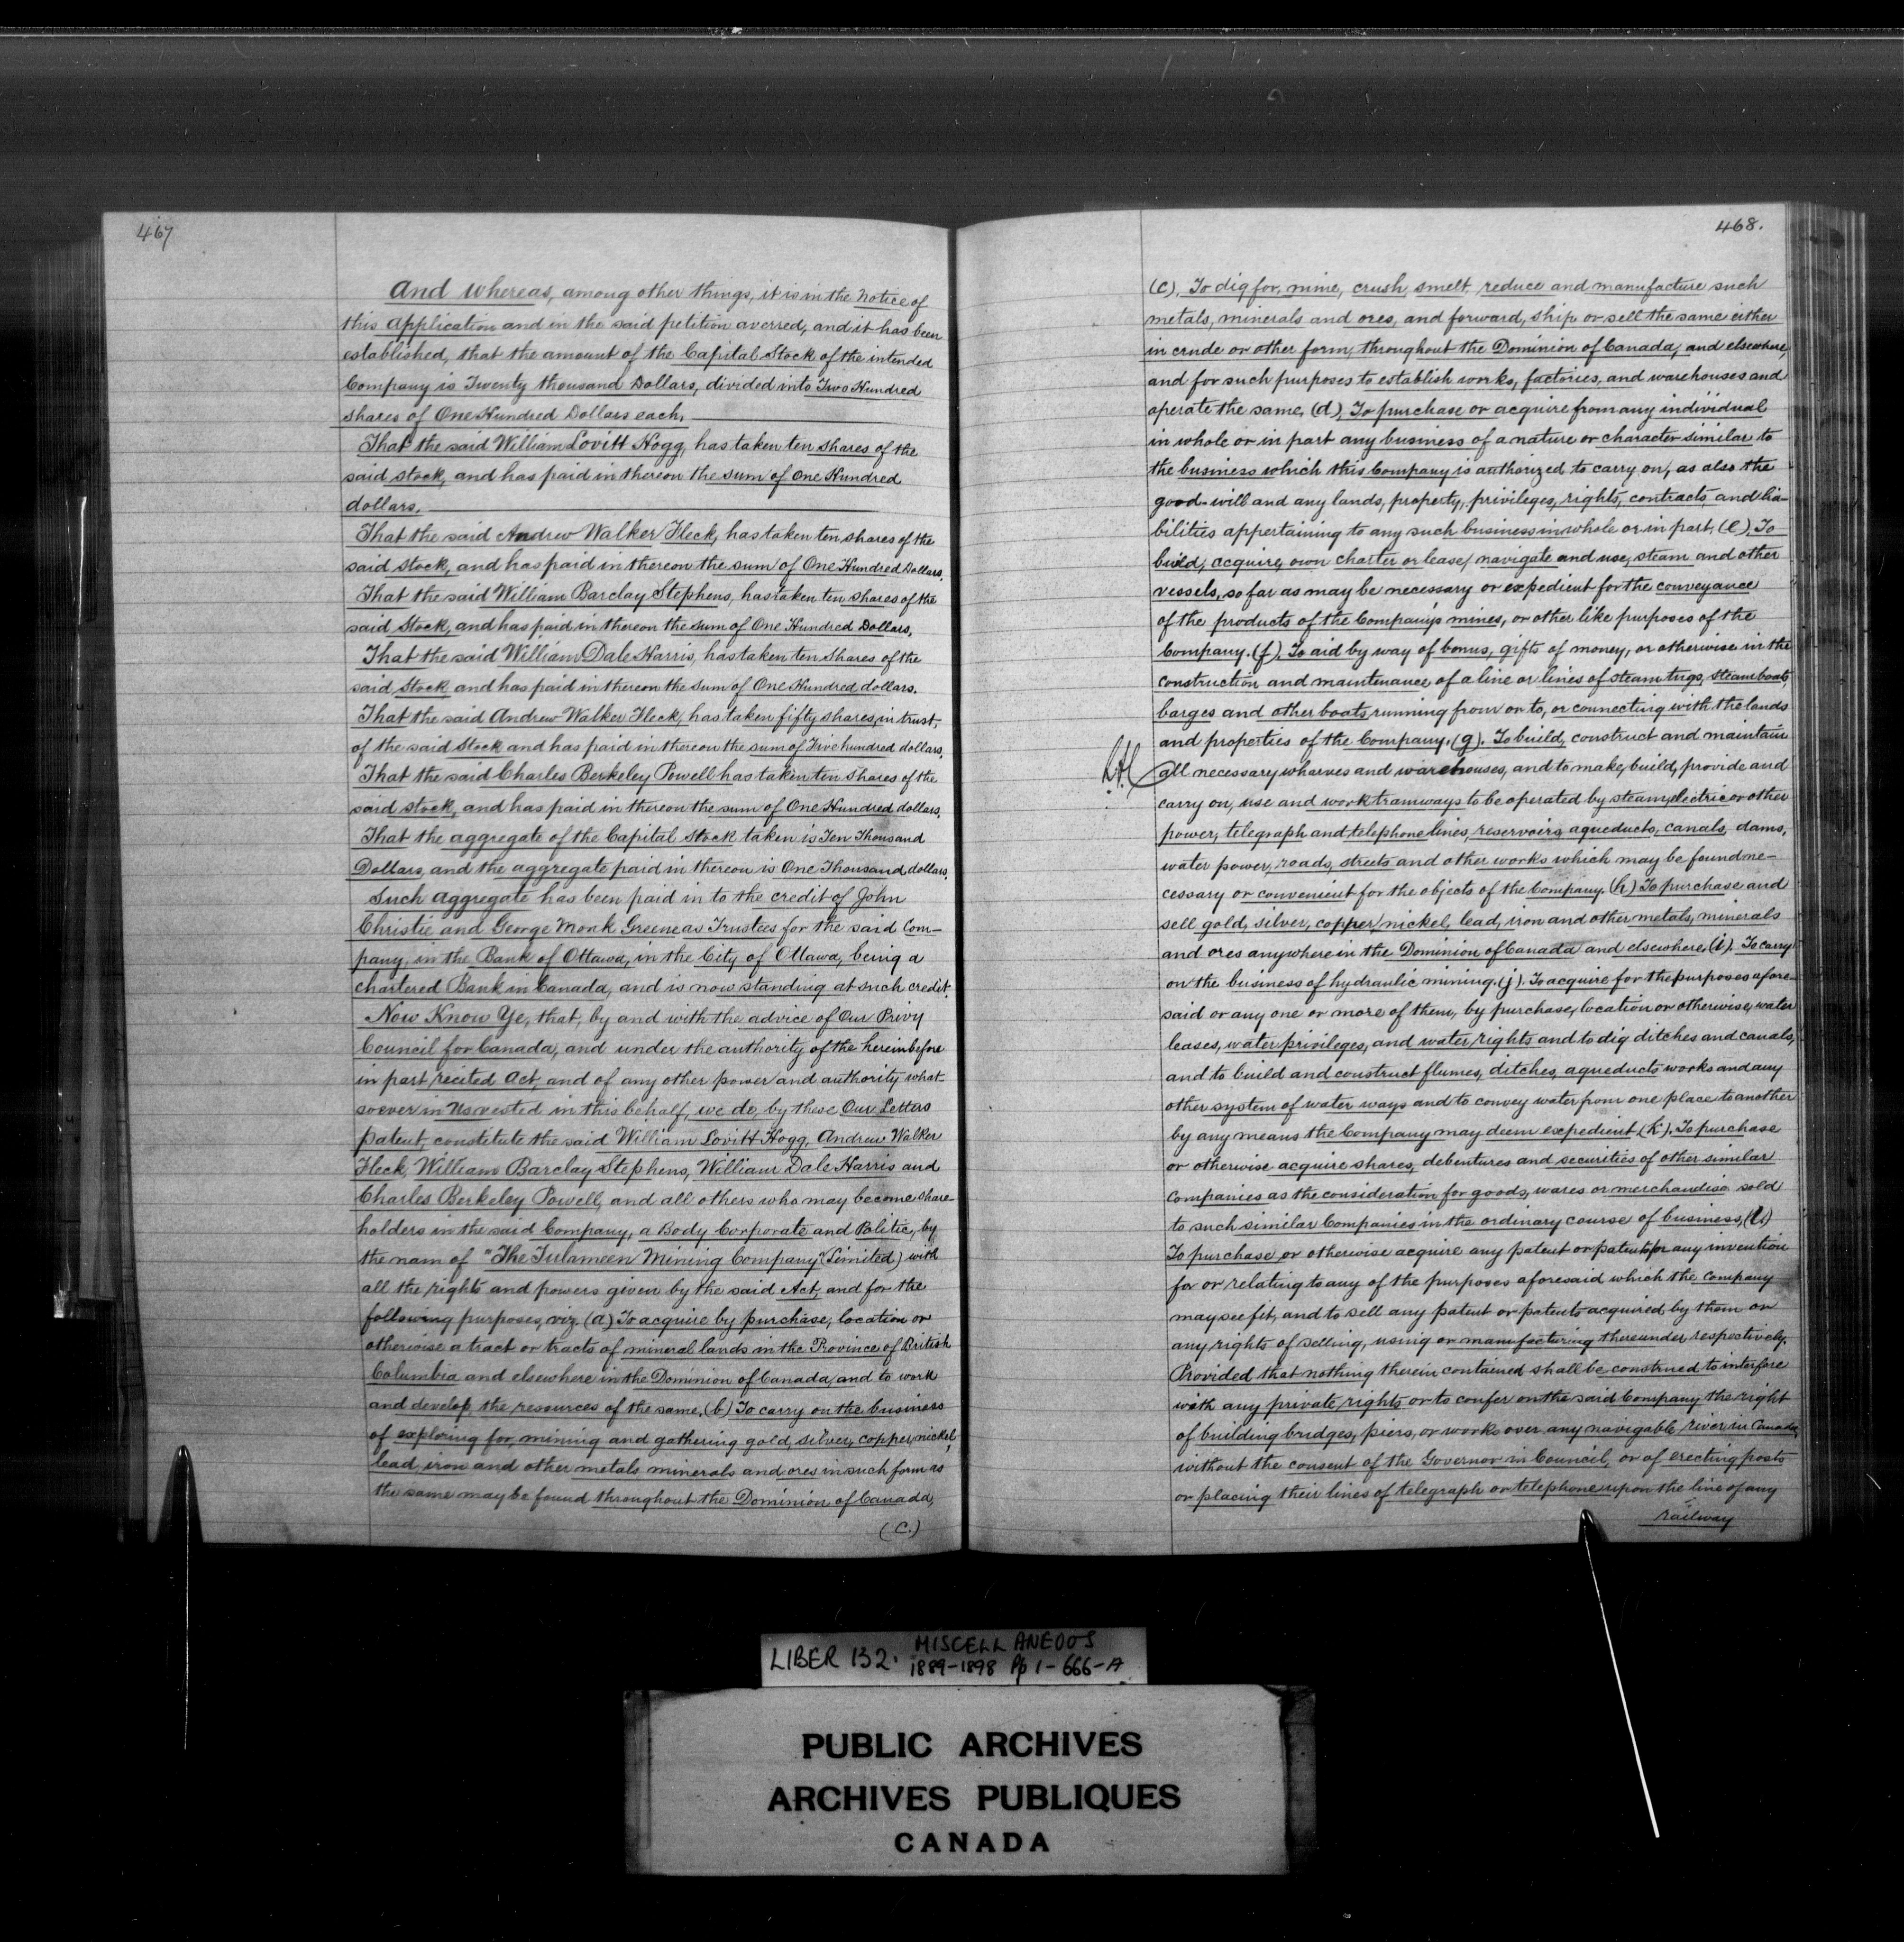 467
And whereas, among other things, it is in the Notice of
this application and in the said petition averred, and it has been
established, that the amount of the Capital Stock of the intended
Company is Twenty thousand Dollars, divided into Two Hundred
shares of One Hundred Dollars each,
That the said William Lovitt Hogg, has taken ten shares of the
said stock, and has paid in thereon the sum of One Hundred
dollars.
That the said Andrew Walker Fleck, has taken ten shares of the
said stock, and has paid in thereon the sum of One Hundred Dollars.
That the said William Barclay Stephens, has taken ten shares of the
said Stock, and has paid in thereon the sum of One Hundred Dollars.
That the said William Dale Harris, has taken ten shares of the
said stock and has paid in thereon the sum of One Hundred dollars.
That the said Andrew Walker Fleck, has taken fifty shares in trust,
of the said stock and has paid in thereon the sum of Five hundred dollars.
That the said Charles Berkeley Powell has taken ten shares of the
said stock, and has paid in thereon the sum of One Hundred dollars.
That the aggregate of the Capital Stock taken is Ten Thousand
Dollars, and the aggregate paid in thereon is One Thousand dollars.
Such aggregate has been paid in to the credit of John
Christie and George Monk Greene as Trustees for the said Com-
pany, in the Bank of Ottawa, in the City of Ottawa, being a
chartered Bank in Canada, and is now standing at such credit.
Now Know Ye, that, by and with the advice of Our Privy
Council for Canada, and under the authority of the hereinbefore
in part recited Act, and of any other power and authority what-
soever in Us vested in this behalf, we do, by these Our Letters
patent, constitute the said William Lovitt Hogg, Andrew Walker
Fleck, William Barclay Stephens, William Dale Harris and
Charles Berkeley Powell, and all others who may become share-
holders in the said Company, a Body Corporate and Politic, by
the nam of "The Tulameen Mining Company" (Limited) with
all the rights and powers given by the said Act, and for the
following purposes, viz. (a) To acquire by purchase, location or
otherwise a tract or tracts of mineral lands in the Province of British
Columbia and elsewhere in the Dominion of Canada, and to work
and develop the resources of the same, (b) To carry on the business
of exploring for, mining and gathering gold, silver, copper, nickel,
lead, iron and other metals minerals and ores in such form as
the same may be found throughout the Dominion of Canada,
(C.)
468.
(C), To dig for, mine, crush, smelt, reduce and manufacture such
metals, minerals and ores, and forward, ship or sell the same either
in crude or other form, throughout the Dominion of Canada, and elsewhere,
and for such purposes to establish works, factories, and warehouses and
operate the same, (d), To purchase or acquire from any individual
in whole or in part any business of a nature or character similar to
the business which this Company is authorized to carry on, as also the
good-will and any lands, property, privileges, rights, contracts, and lia-
bilities appertaining to any such business in whole or in part, (e), To
build, acquire, own charter or lease, navigate and use, steam and other
vessels, so far as may be necessary or expedient for the conveyance
of the products of the Company's mines, or other like purposes of the
Company. (f). To aid by way of bonus, gifts of money, or otherwise in the
construction and maintenance of a line or lines of steam tugs, steamboats,
barges and other boats, running from or to, or connecting with the lands
and properties of the Company. (g). To build, construct and maintain
all necessary wharves and warehouses, and to make, build, provide and
carry on, use and work tramways to be operated by steam, electric or other
power, telegraph and telephone lines, reservoirs, aqueducts, canals, dams,
water power, roads, streets and other works which may be found ne-
cessary or convenient for the objects of the Company. (h) To purchase and
sell gold, silver, copper, nickel, lead, iron and other metals, minerals
and ores anywhere in the Dominion of Canada and elsewhere, (i). To carry
on the business of hydraulic mining. (j). To acquire for the purposes afore-
said or any one or more of them, by purchase, location or otherwise, water
leases, water privileges, and water rights and to dig ditches and canals,
and to build and construct flumes, ditches, aqueducts works and any
other system of water ways and to convey water from one place to another
by any means the Company may deem expedient (k). To purchase
or otherwise acquire shares, debentures and securities of other similar
Companies as the consideration for goods, wares or merchandise sold
to such similar Companies in the ordinary course of business, (l)
To purchase or otherwise acquire any patent or patents for any invention
for or relating to any of the purposes aforesaid which the Company
may see fit, and to sell any patent or patents acquired by them or
any rights of selling, using or manufacturing thereunder respectively.
Provided that nothing therein contained shall be construed to interfere
with any private rights or to confer on the said Company the right
of building bridges, piers, or works over any navigable river in Canada,
without the consent of the Governor in Council, or of erecting posts
or placing their lines of telegraph or telephone upon the line of any
railway
LIBER 132. MISCELLANEOOS
1889-1898 Pp 1-666-A
PUBLIC ARCHIVES
ARCHIVES PUBLIQUES
CANADA